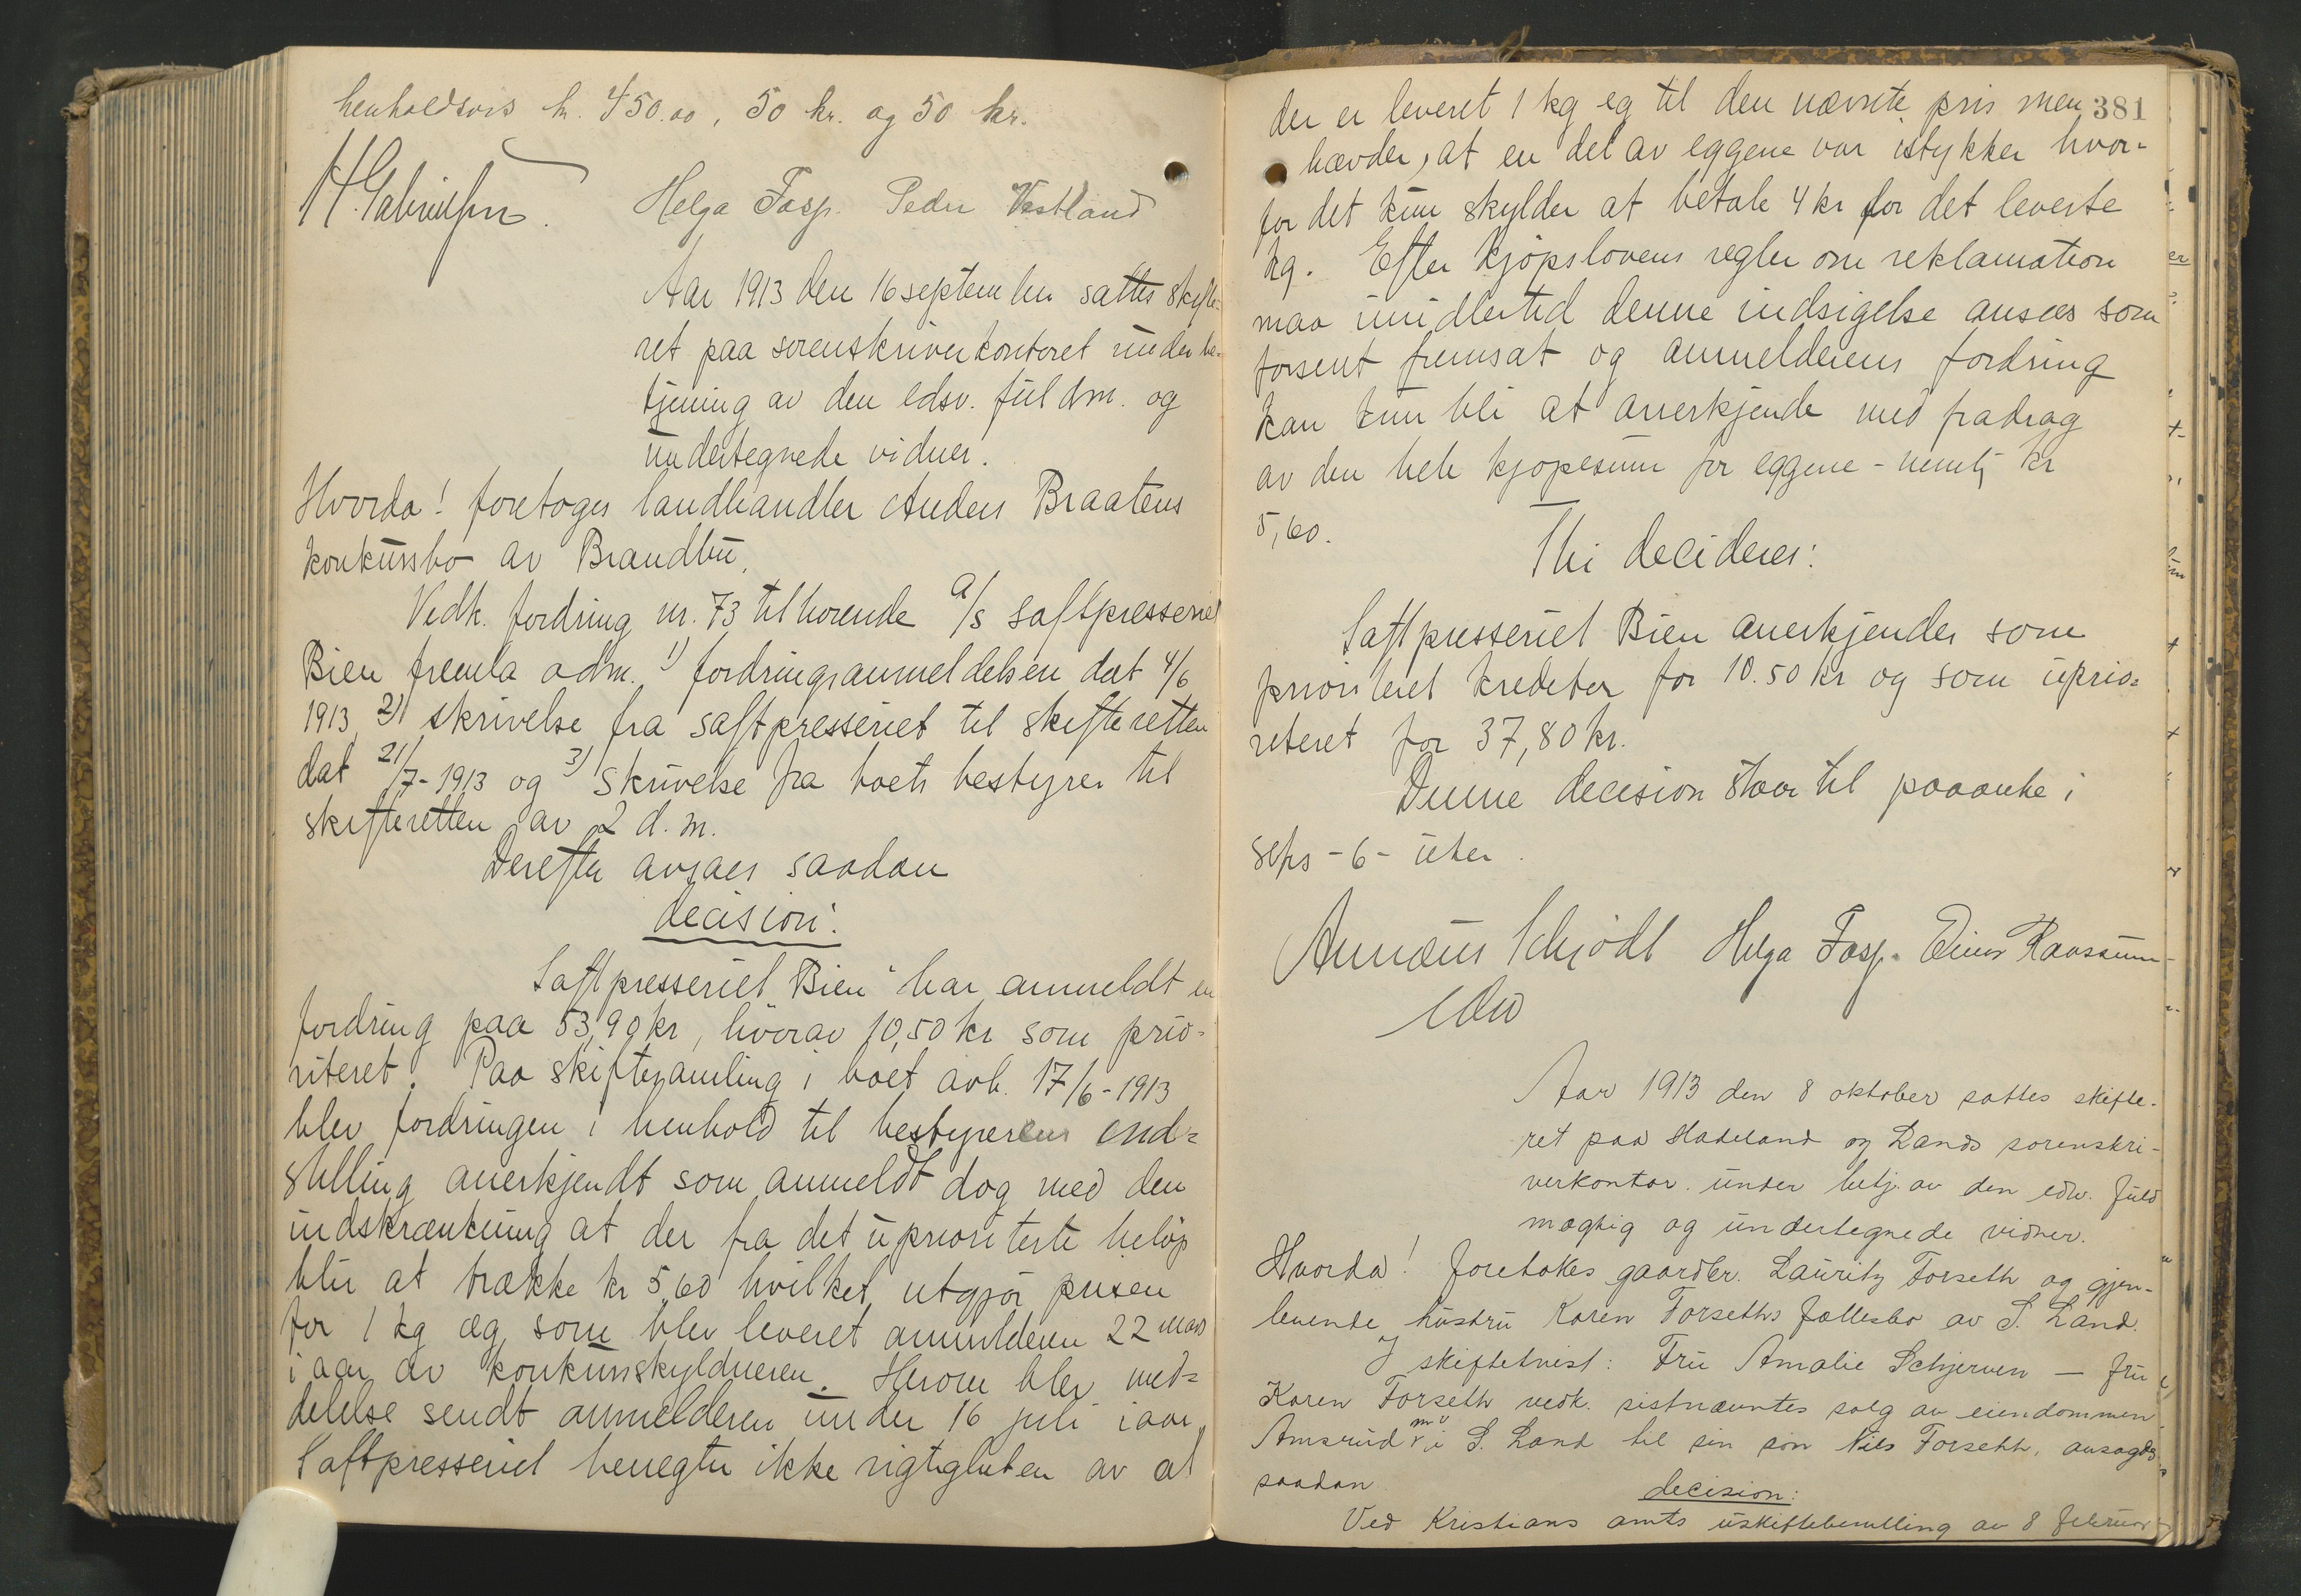 henholdsvis kr. 450.00, 50 kr. og 50 kr.
H. Gabrielsen. Helga Fasp. Peder Vestland
Aar 1913 den 16 september sattes skifte-
ret paa sorenskriverkontoret under be-
tjening av den edsv. fuldm. og
undertegnede vidner.
Hvorda! foretoges landhandler Anders Braatens
konkursbo av Brandbu.
Vedk. fordring nr. 73 tilhorende a/s saftpresseriet
Bien fremla adm. 1) fordringsanmeldelsen dat 4/6
1913, 2) skrivelse fra saftpresseriet til skifteretten
dat 21/7-1913 og 3) skrivelse fra boets bestyrer til
skifteretten av 2 d. m.
Derefter avsaes saadan
decision:
Saftpresseriet "Bien" har anmeldt en
fordring paa 53,90 kr, hvorav 10,50 kr som prio-
riteret. Paa skiftesamling i boet avh. 17/6-1913
blev fordringen i henhold til bestyrerens ind-
stilling anerkjendt som anmeldt dog med den
indskrænkning at der fra det upriorite­rte beløp
blir at trække kr 5,60 hvilket utgjør prisen
for 1 kg æg, som blev leveret anmelderen 22 mars
i aar av konkursskyldneren. Herom blev med-
delelse sendt anmelderen under 16 juli iaar.
Saftpresseriet benegter ikke rigtigheten av at
381
der er leveret 1 kg eg til den nævnte pris men
hævder, at en del av eggene var istykker hvor-
for det kun skylder at betale 4 kr for det leverte
kg. Efter kjøpslovens regler om reklamation
maa imidlertid denne indsigelse ansees som
forsent fremsat og anmelderens fordring
kan kun bli at anerkjende med fradrag
av den hele kjøpesum for eggene - nemlig kr
5,60.
Thi decideres:
Saftpresseriet Bien anerkjendes som
prioriteret kreditor for 10.50 kr og som uprio-
riteret for 37,80 kr.
Denne decision staar til paaanke i
seks -6- uker.
Annæus Schjødt Helga Fasp. Einar Raassum
edsv
Aar 1913 den 8 oktober sattes skifte-
ret paa Hadeland og Lands sorenskri-
verkontor under betj. av den edsv. fuld
mægtig og undertegnede vidner.
Hvorda! foretokes gaardbr. Lauritz Forseth og gjen-
levende hustru Karen Forseths fællesbo av S. Land.
I skiftetvist: Fru Amalie Schjerven — fru
Karen Forseth vedk. sistnævntes salg av eiendommen
Amsrud m v i S. Land til sin søn Nils Forseth, avsagdes
saadan
decision:
Ved Kristians amts uskiftebevilling av 8 februar